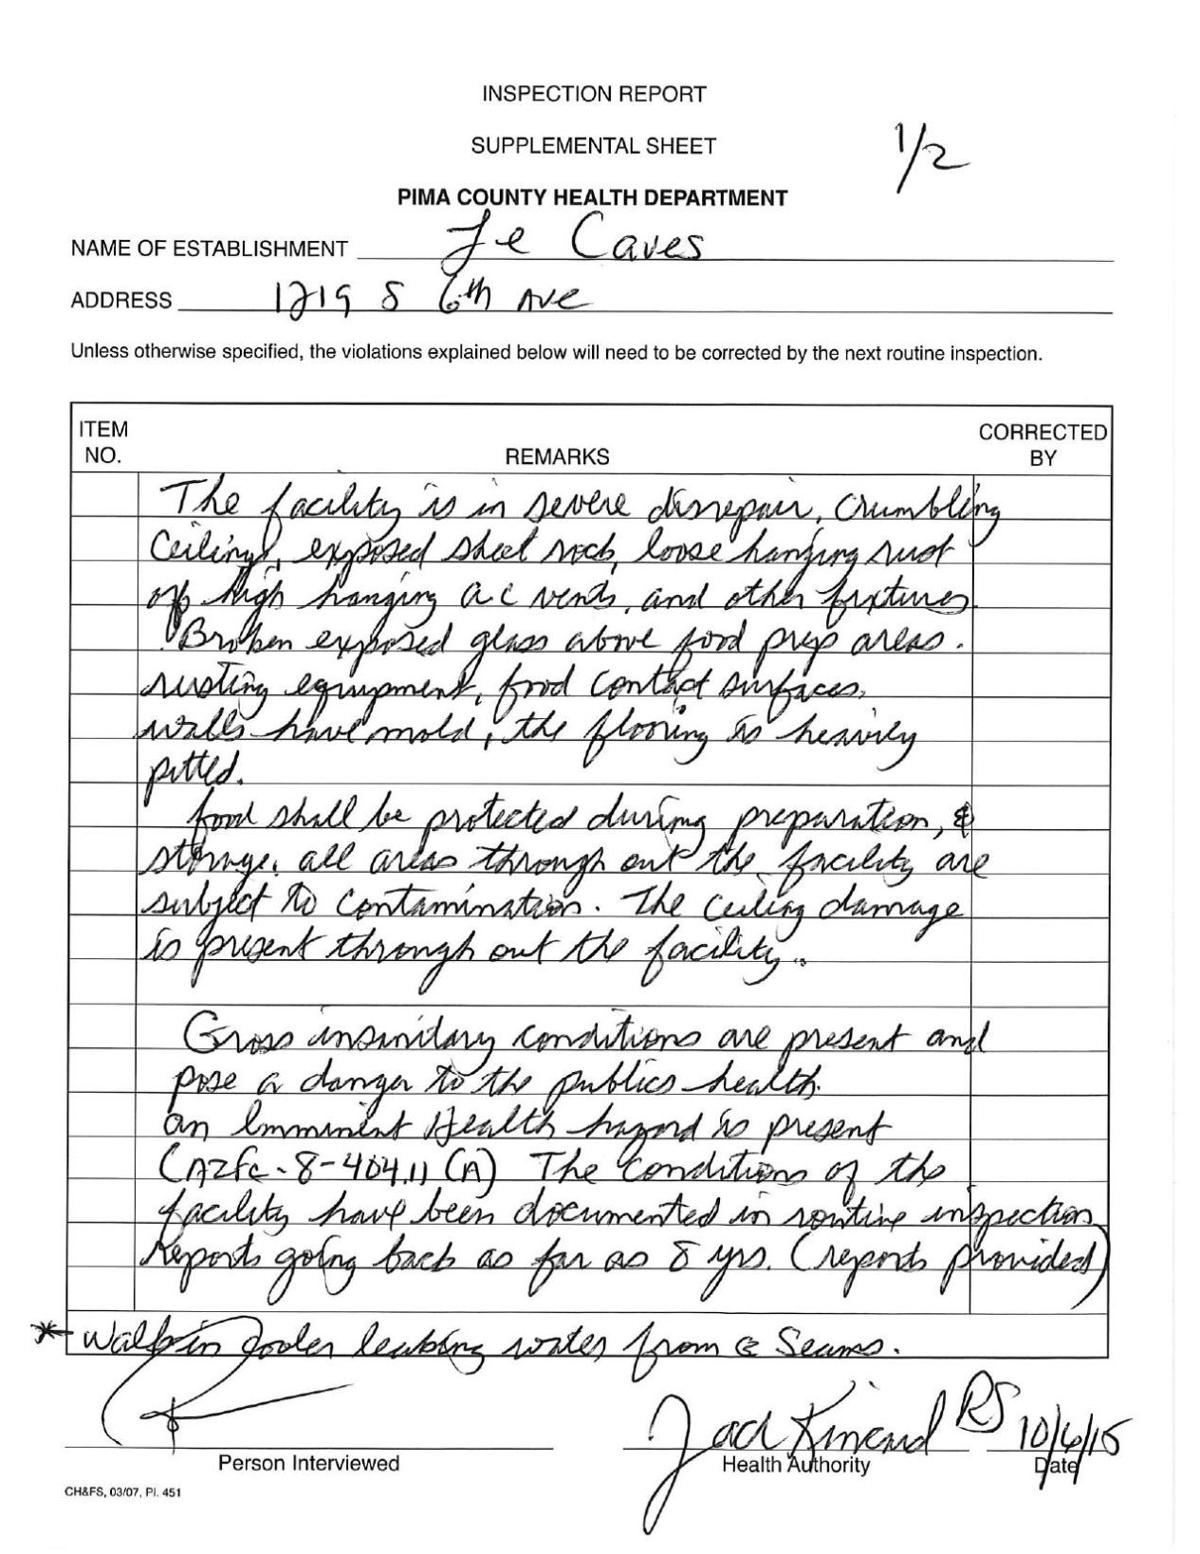 INSPECTION REPORT
SUPPLEMENTAL SHEET
1/2
PIMA COUNTY HEALTH DEPARTMENT
NAME OF ESTABLISHMENT Le Caves
ADDRESS 1219 S 6th Ave
Unless otherwise specified, the violations explained below will need to be corrected by the next routine inspection.
ITEM NO.
REMARKS
CORRECTED BY
The facility is in severe disrepair, Crumbling
Ceilings, exposed sheet rock, loose hanging rust
off high hanging a c vents, and other fixtures
Broken exposed glass above food prep areas.
rusting equipment, food contact surfaces,
walls have mold, the flooring is heavily
pitted.
food shall be protected during preparation, &
storage. all areas through out the facility are
subject to contamination. The ceiling damage
is present through out the facility.
Gross insanitary conditions are present and
pose a danger to the publics health.
an Imminent Health hazard is present
(AZfc-8-404.11 (A) The conditions of the
facility have been documented in routine inspection
Reports going back as far as 8 yrs. (reports provided)
* Walk in cooler leaking water from @ Seams.
Jach Kinend RS 10/6/15
Person Interviewed
Health Authority
Date
CH&FS, 03/07, Pl. 451